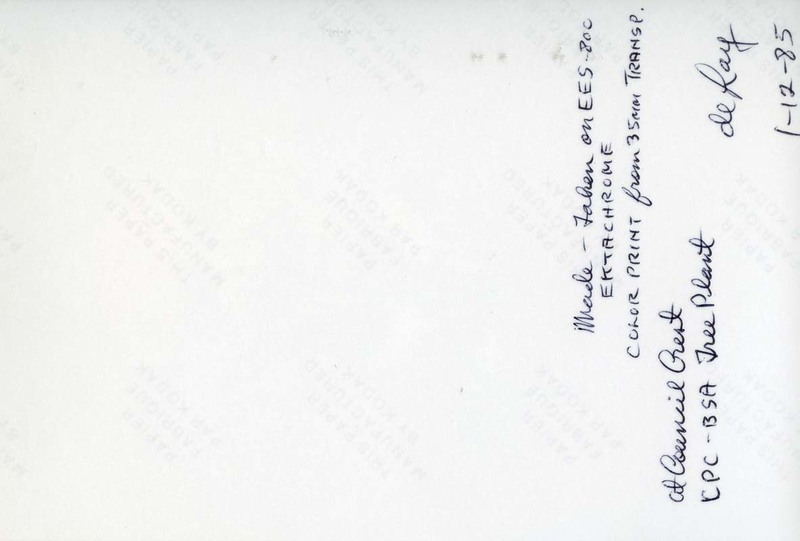 Made - taken on EES-800
EKTACHROME
COLOR PRINT from 35mm TRANSP.
at Council Crest
KPC-BSA Tree Plant
de Ray
1-12-85
THIS PAPER
MANUFACTURED
BY KODAK
PAPIER
FABRIQUE
PAR KODAK